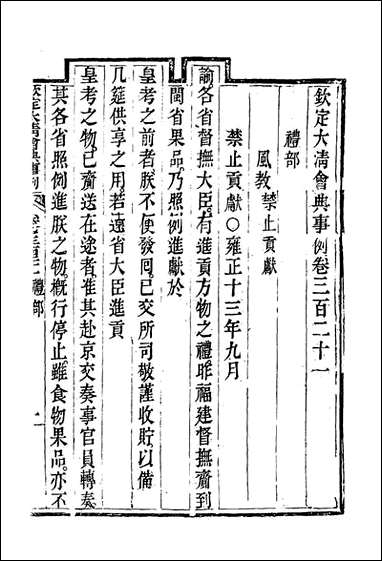 欽定大清會典事例卷三百二十一
禮部
風教禁止貢獻
禁止貢獻○雍正十三年九月
諭各省督撫大臣有進貢方物之禮昨福建督撫齎到
閩省果品乃照例進獻於
皇考之前者朕不便發囘已交所司敬謹收貯以備
几筵供享之用若遠省大臣進貢
皇考之物已齎送在途者准其赴京交奏事官員轉奏
其各省照例進朕之物槪行停止雖食物果品亦不
欽定大清會典事例 禮部